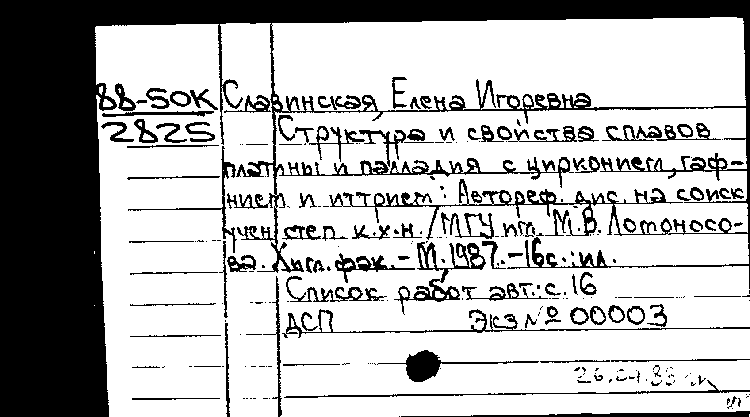 88-50К Славинская, Елена Игоревна
2825 Структура и свойства сплавов
платины и палладия с цирконием, гаф-
нием и иттрием: Автореф. дис. на соиск.
учен. степ. к.х.н. / МГУ им. М.В. Ломоносо-
ва. Хим. фак. - М., 1987. - 16с.: ил.
Список работ авт.: с. 16
ДСП Экз № 00003